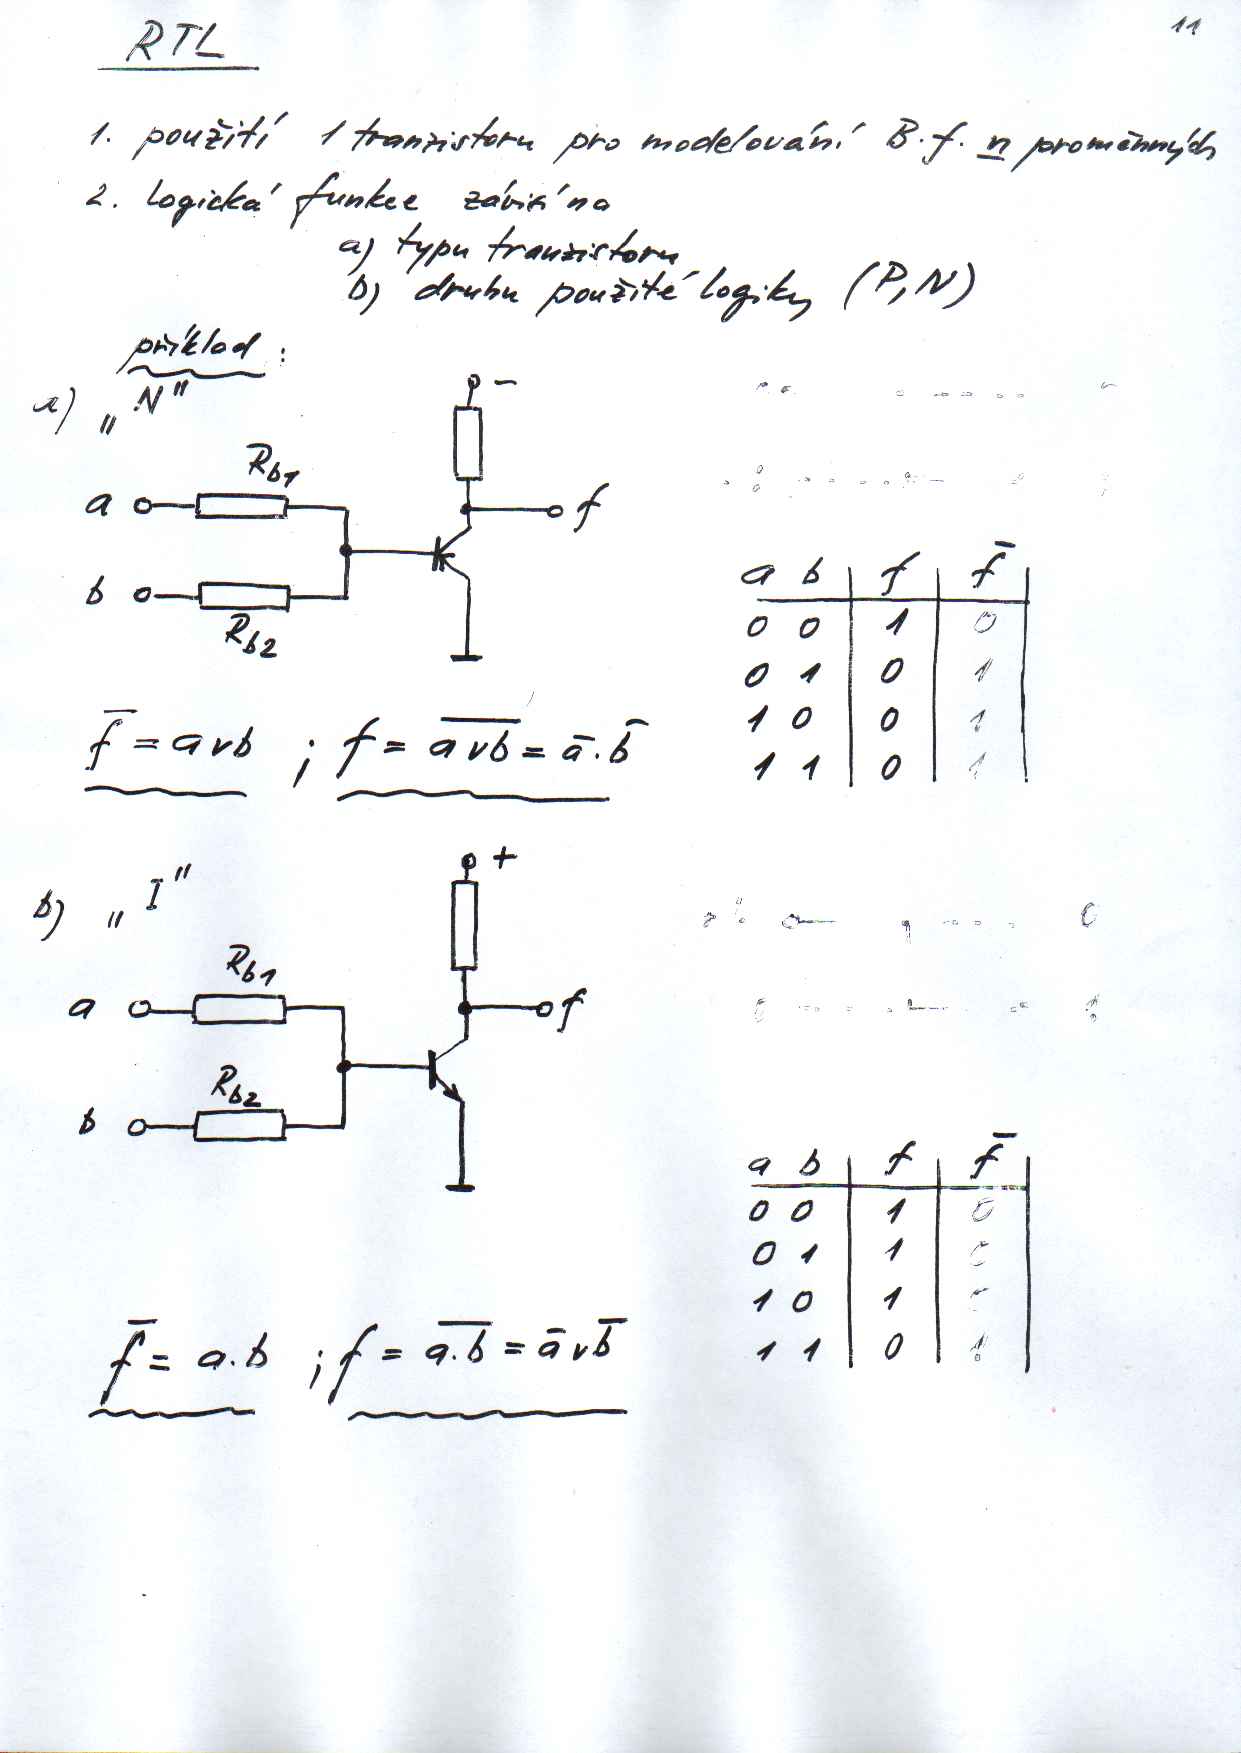 11
RTL
1. použití 1 tranzistoru pro modelování B.f. n proměnných
2. logická funkce závisí na
a) typu tranzistoru
b) druhu použité logiky (P,N)
příklad :
a) „N"
−
Rb1
a
f
b
Rb2
a b f f̅
0 0 1 0
0 1 0 1
1 0 0 1
1 1 0 1
f̅ = a v b ; f = a̅ ̅v̅ ̅b̅ = a̅ . b̅
b) „I"
+
Rb1
a
f
Rb2
b
a b f f̅
0 0 1 0
0 1 1
1 0 1
1 1 0 1
f̅ = a . b ; f = a̅ ̅.̅ ̅b̅ = a̅ v b̅